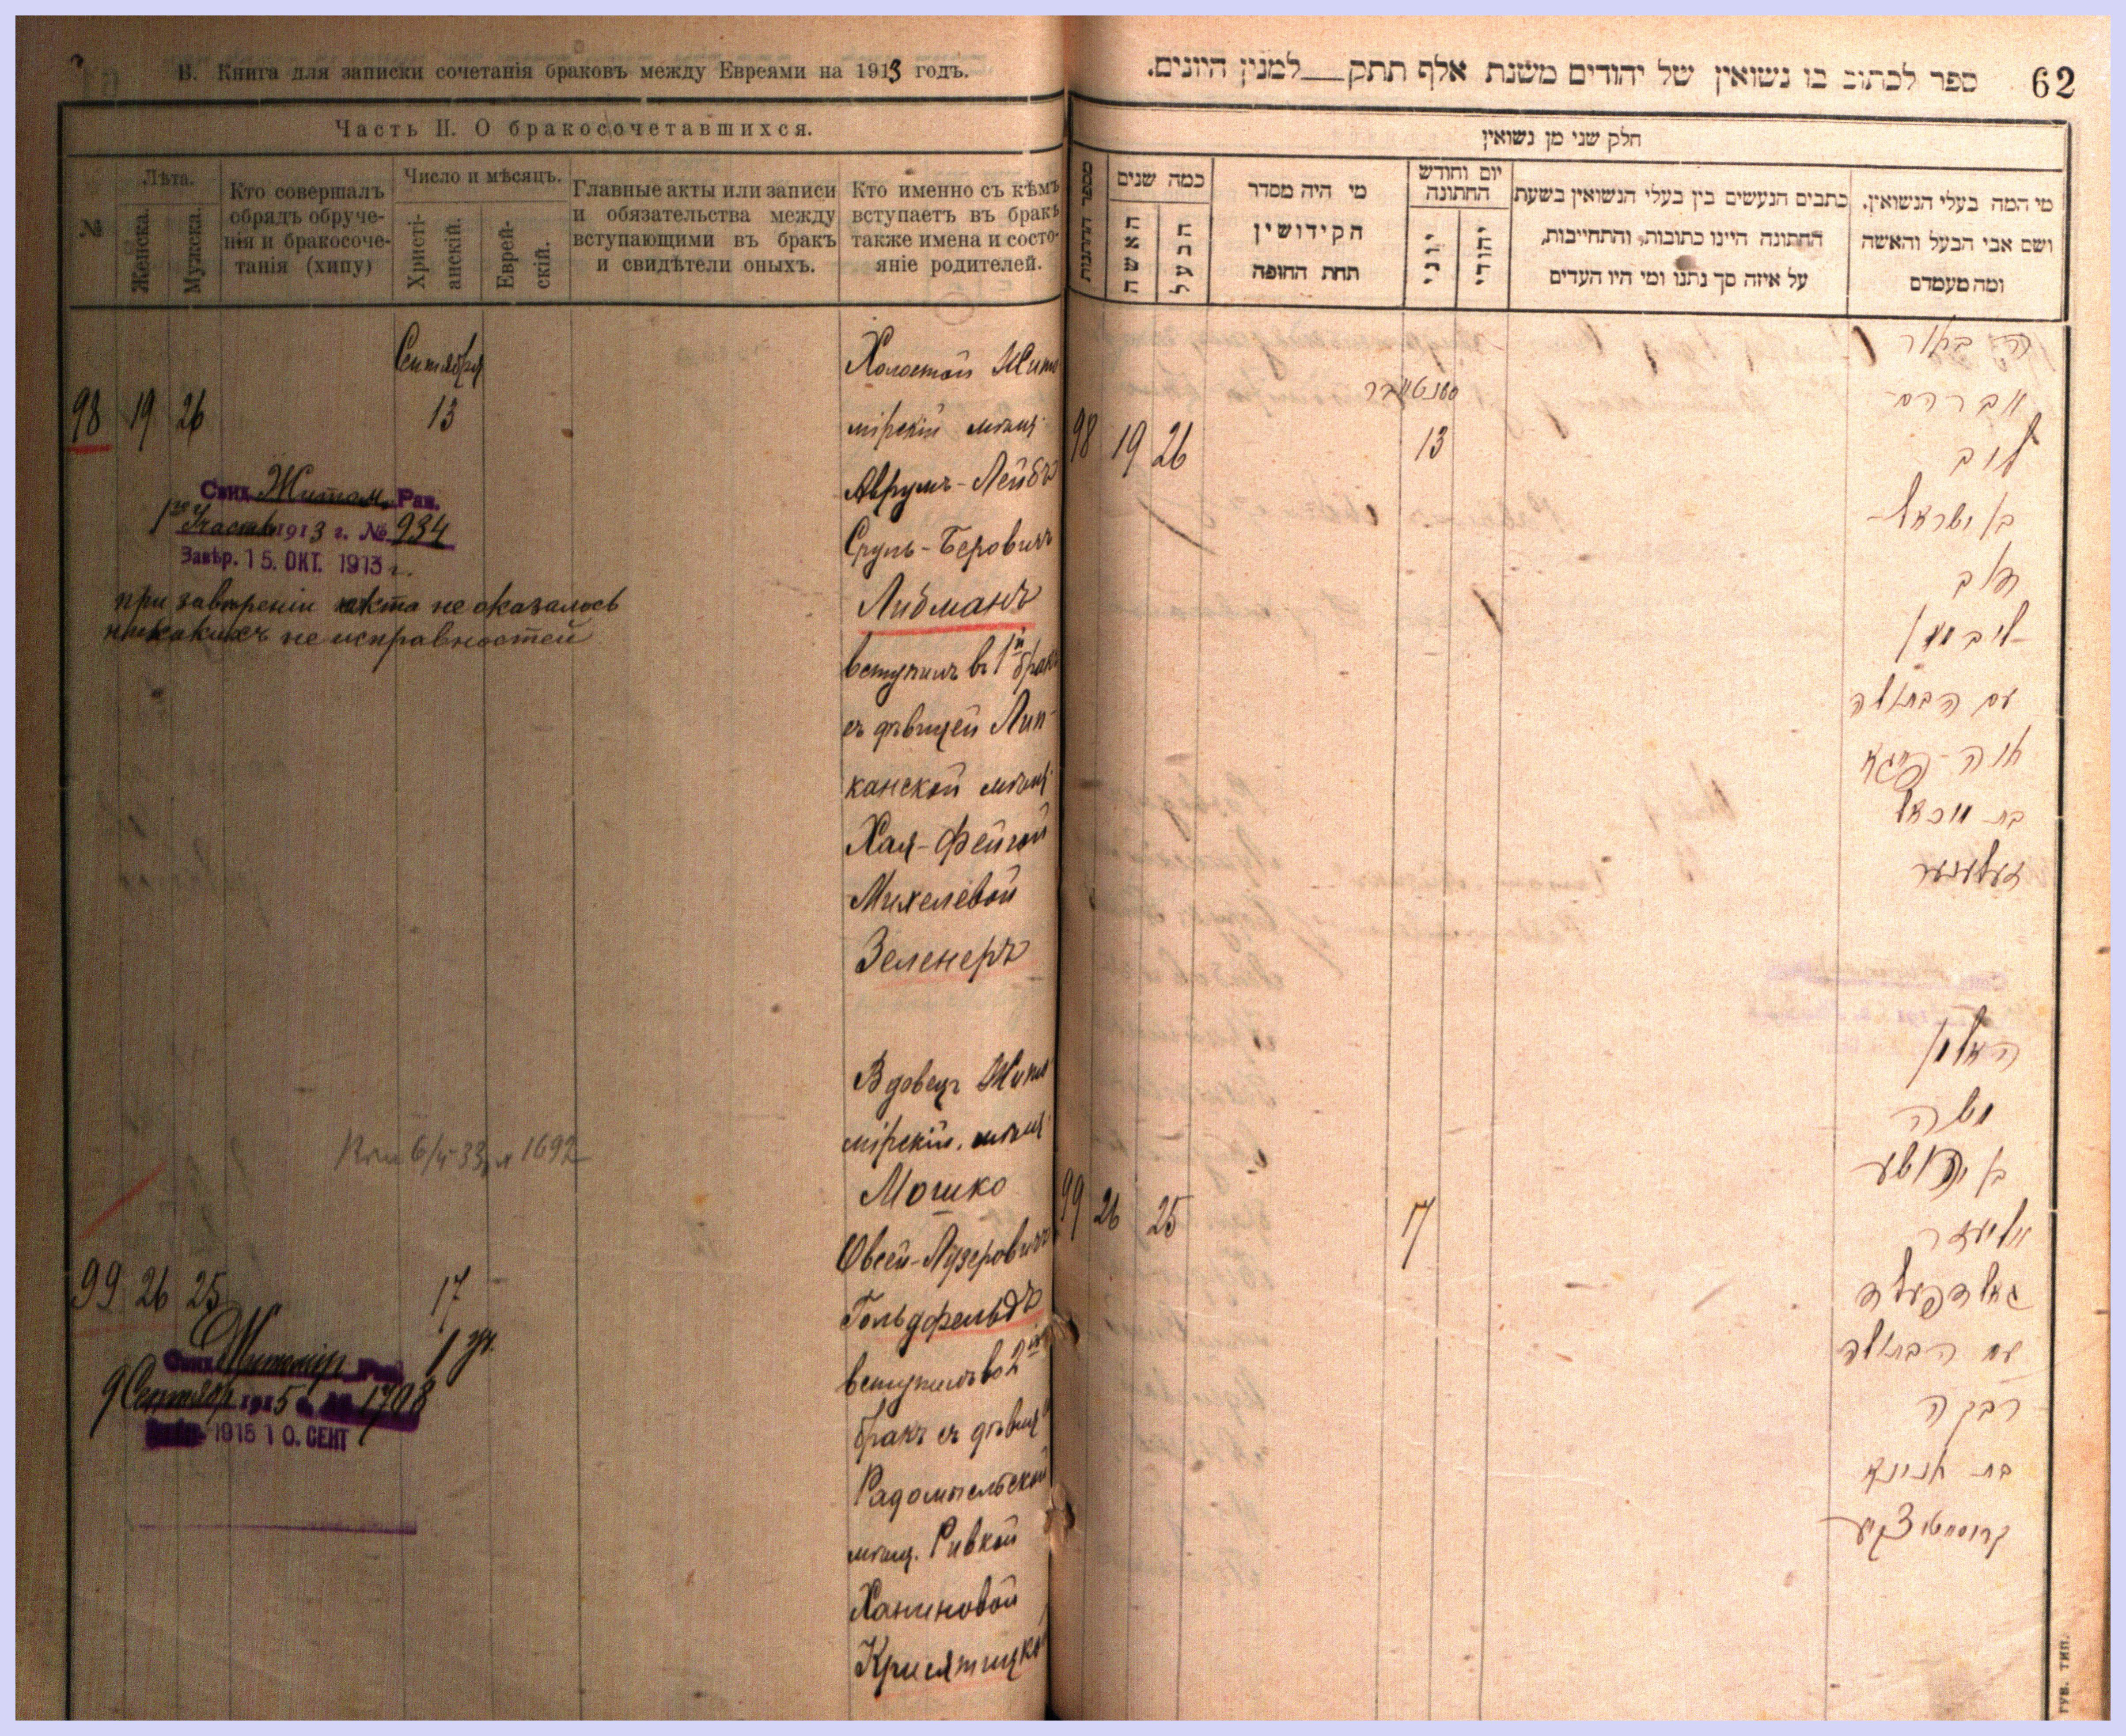 В. Книга для записки сочетанія браковъ между Евреями на 1913 годъ.
Часть II. О бракосочетавшихся.
№
Лѣта.
Женска.
Мужска.
Кто совершалъ
обрядъ обруче-
нія и бракосоче-
танія (хипу)
Число и мѣсяцъ.
Христі-
анскій.
Еврей-
скій.
Главные акты или записи
и обязательства между
вступающими въ бракъ
и свидѣтели оныхъ.
Кто именно съ кѣмъ
вступаетъ въ бракъ
также имена и состо-
яніе родителей.
Сентября
98 19 26 13
Холостой Жито
мірскій мѣщ.
Аврумъ-Лейбъ
Сруль-Беровичъ
Либманъ
вступилъ въ 1й бракъ
съ дѣвицей Лип-
канской мѣщ.
Хая-Фейгой
Михелевой
Зеленеръ
Свид. Житом. Рав.
1го Участк 1913 г. № 934
Завѣр. 15. ОКТ. 1913 г.
при завѣреніи акта не оказалось
никакихъ не исправностей
Вдовецъ Жит
мірскій мѣщ.
Мошко
Овсей-Лузеровичъ
Гольдфельдъ
вступилъ во 2й
бракъ съ дѣвиц
Радомысльской
мѣщ. Ривкой
Ханиновой
Крисятицкой
6/V-33 1692
99 26 25 17
Свид. Житомір. Рав.
9 Сентябр 1915 г. № 1798
1915 10. СЕНТ
62
ספר לכתוב בו נשואין של יהודים משנת אלף תתק__למנין היונים.
חלק שני מן נשואין
מספר החתונות
כמה שנים
האשה
הבעל
מי היה מסדר
הקידושין
תחת החופה
יום וחודש
החתונה
יוני
יהודי
כתבים הנעשים בין בעלי הנשואין בשעת
החתונה היינו כתובות, והתחייבות,
על איזה סך נתנו ומי היו העדים
מי המה בעלי הנשואין.
ושם אבי הבעל והאשה
ומה מעמדם
סענטאבר
98 19 26 13
ה׳ בחור
אברהם
ליב
בן ישראל
בער
ליבמאן
עם הבתולה
חיה-פייגא
בת מיכאל
זעלענער
האלמן
משה
בן יהושע
אליעזר
גאלדפעלד
עם הבתולה
רבקה
בת חנינא
99 26 25 17
ГУБ. ТИП.